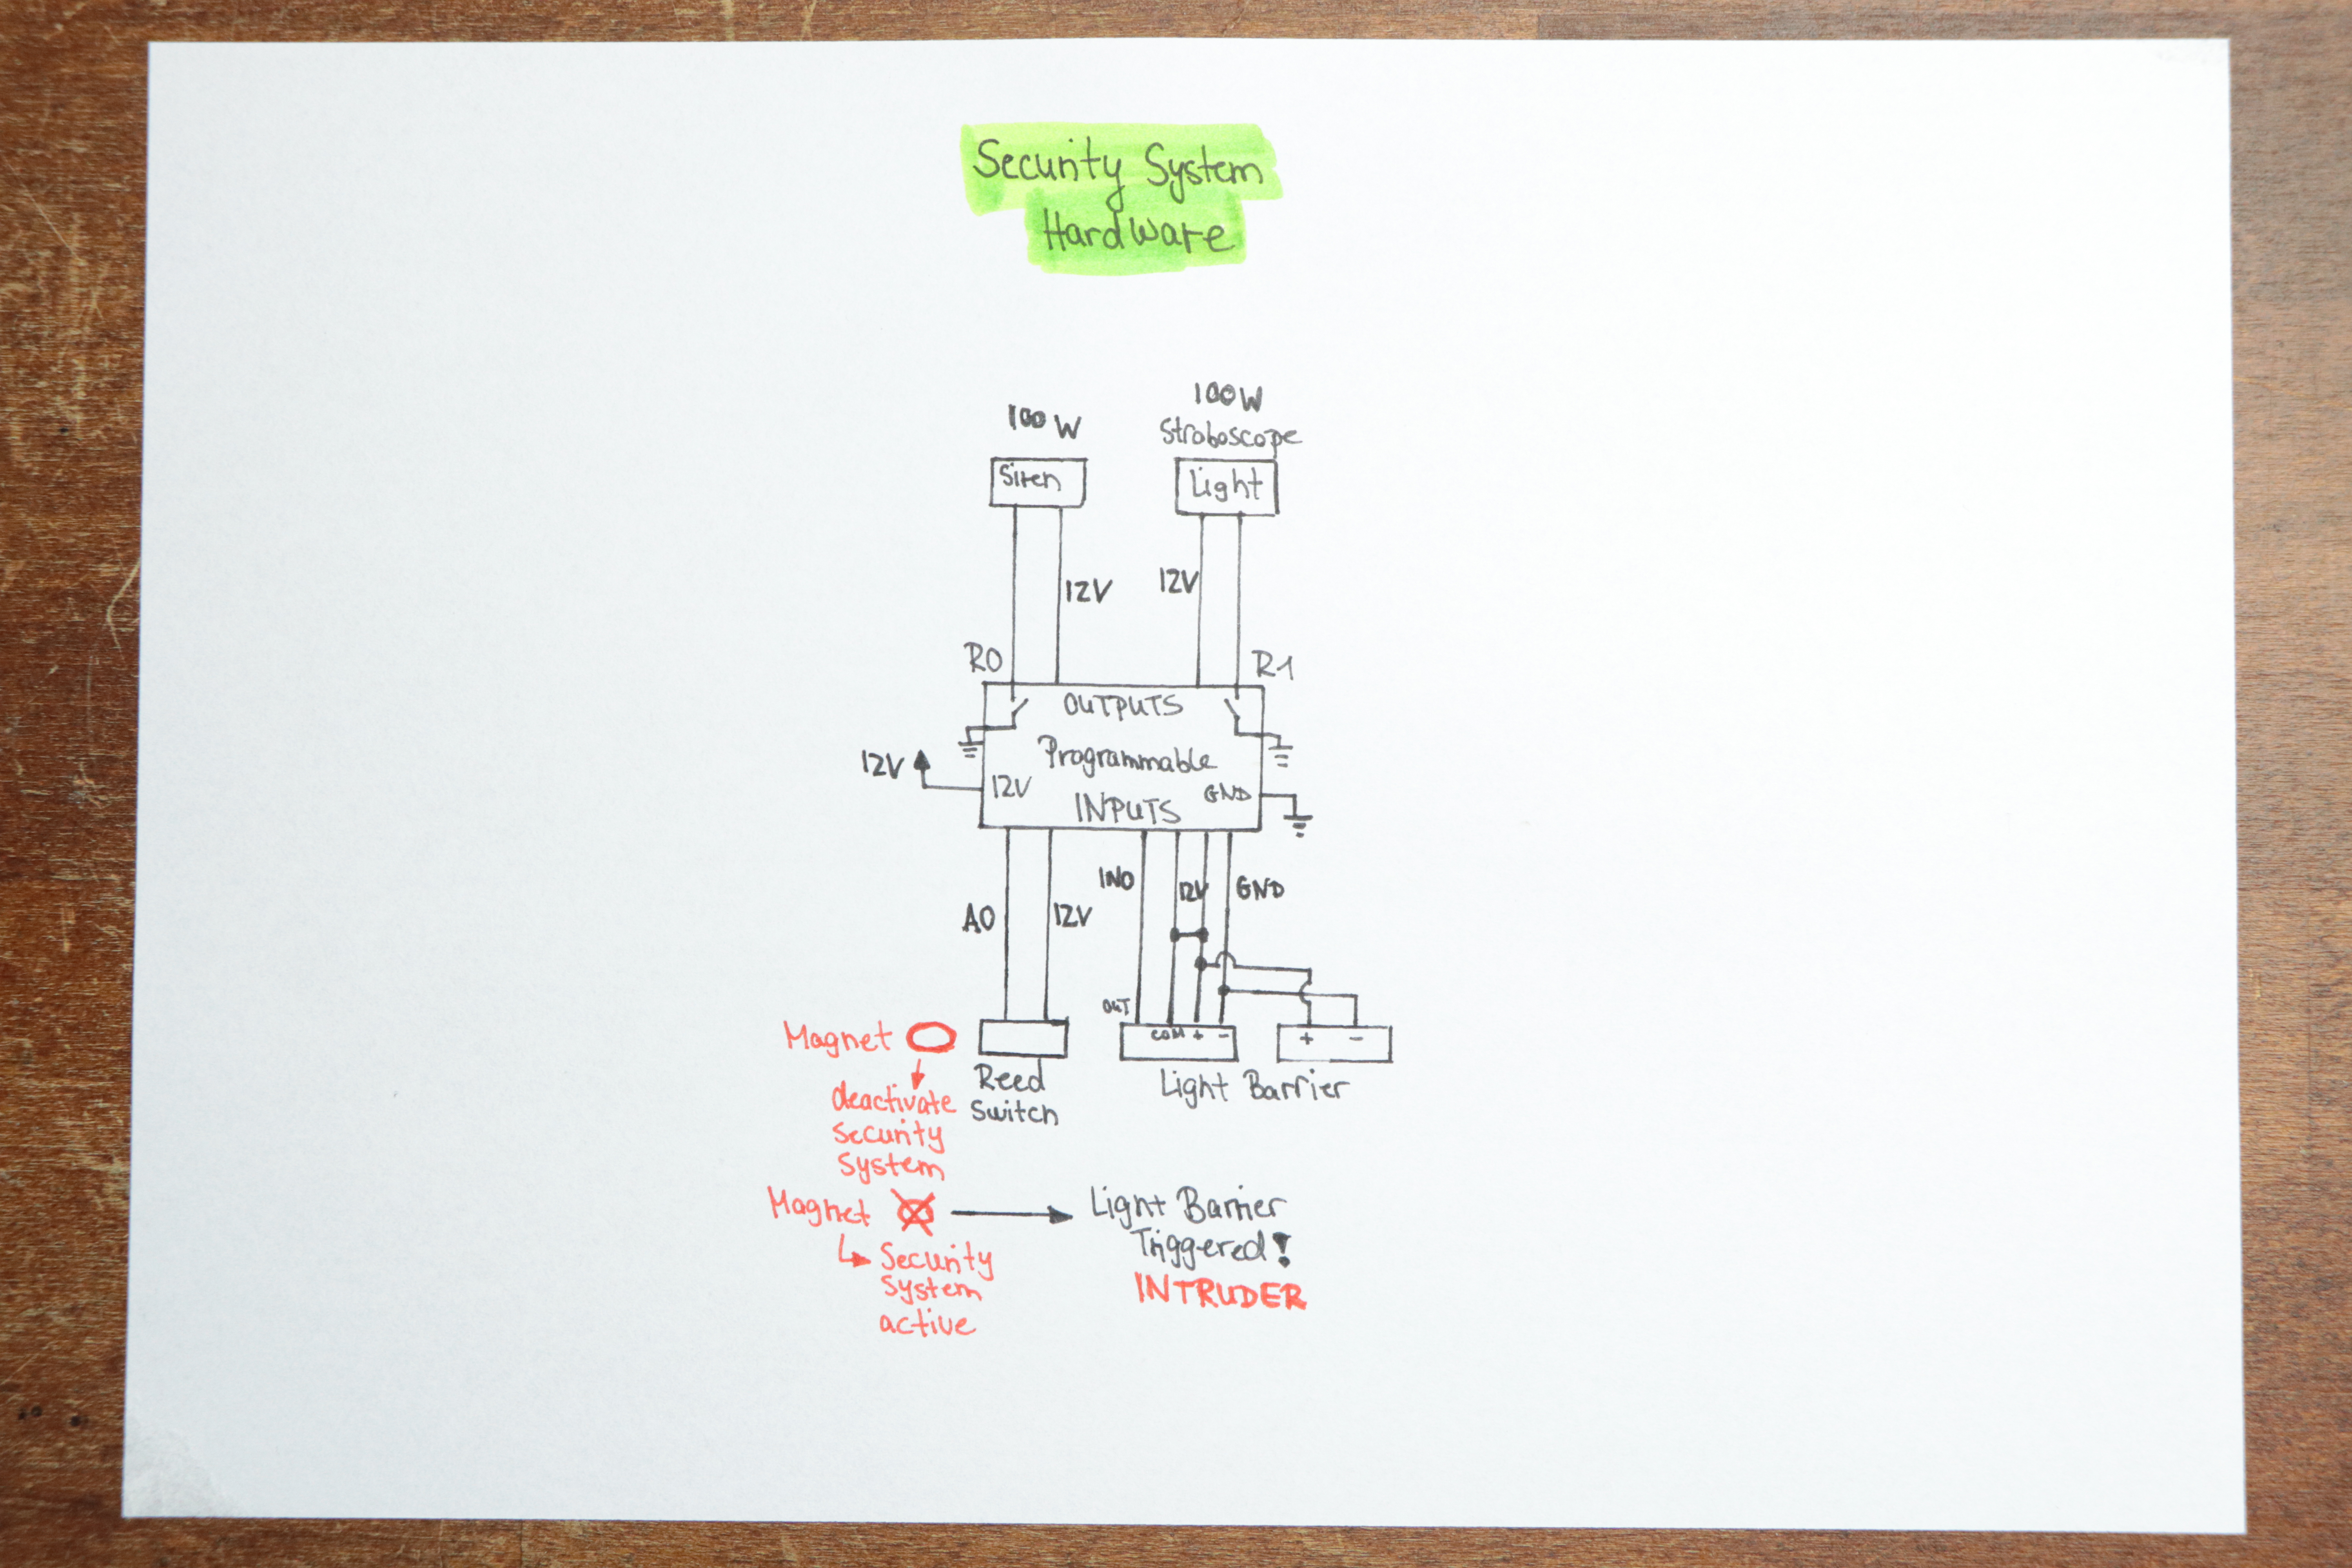 Security System
Hardware
100 W
100W
Stroboscope
Siren
Light
12V
12V
R0
R1
OUTPUTS
Programmable
12V
12V
GND
INPUTS
IN0
12V
GND
A0
12V
OUT
COM + -
+ -
Magnet
Reed
Switch
Light Barrier
deactivate
Security
System
Magnet
Light Barrier
Triggered!
INTRUDER
Security
System
active